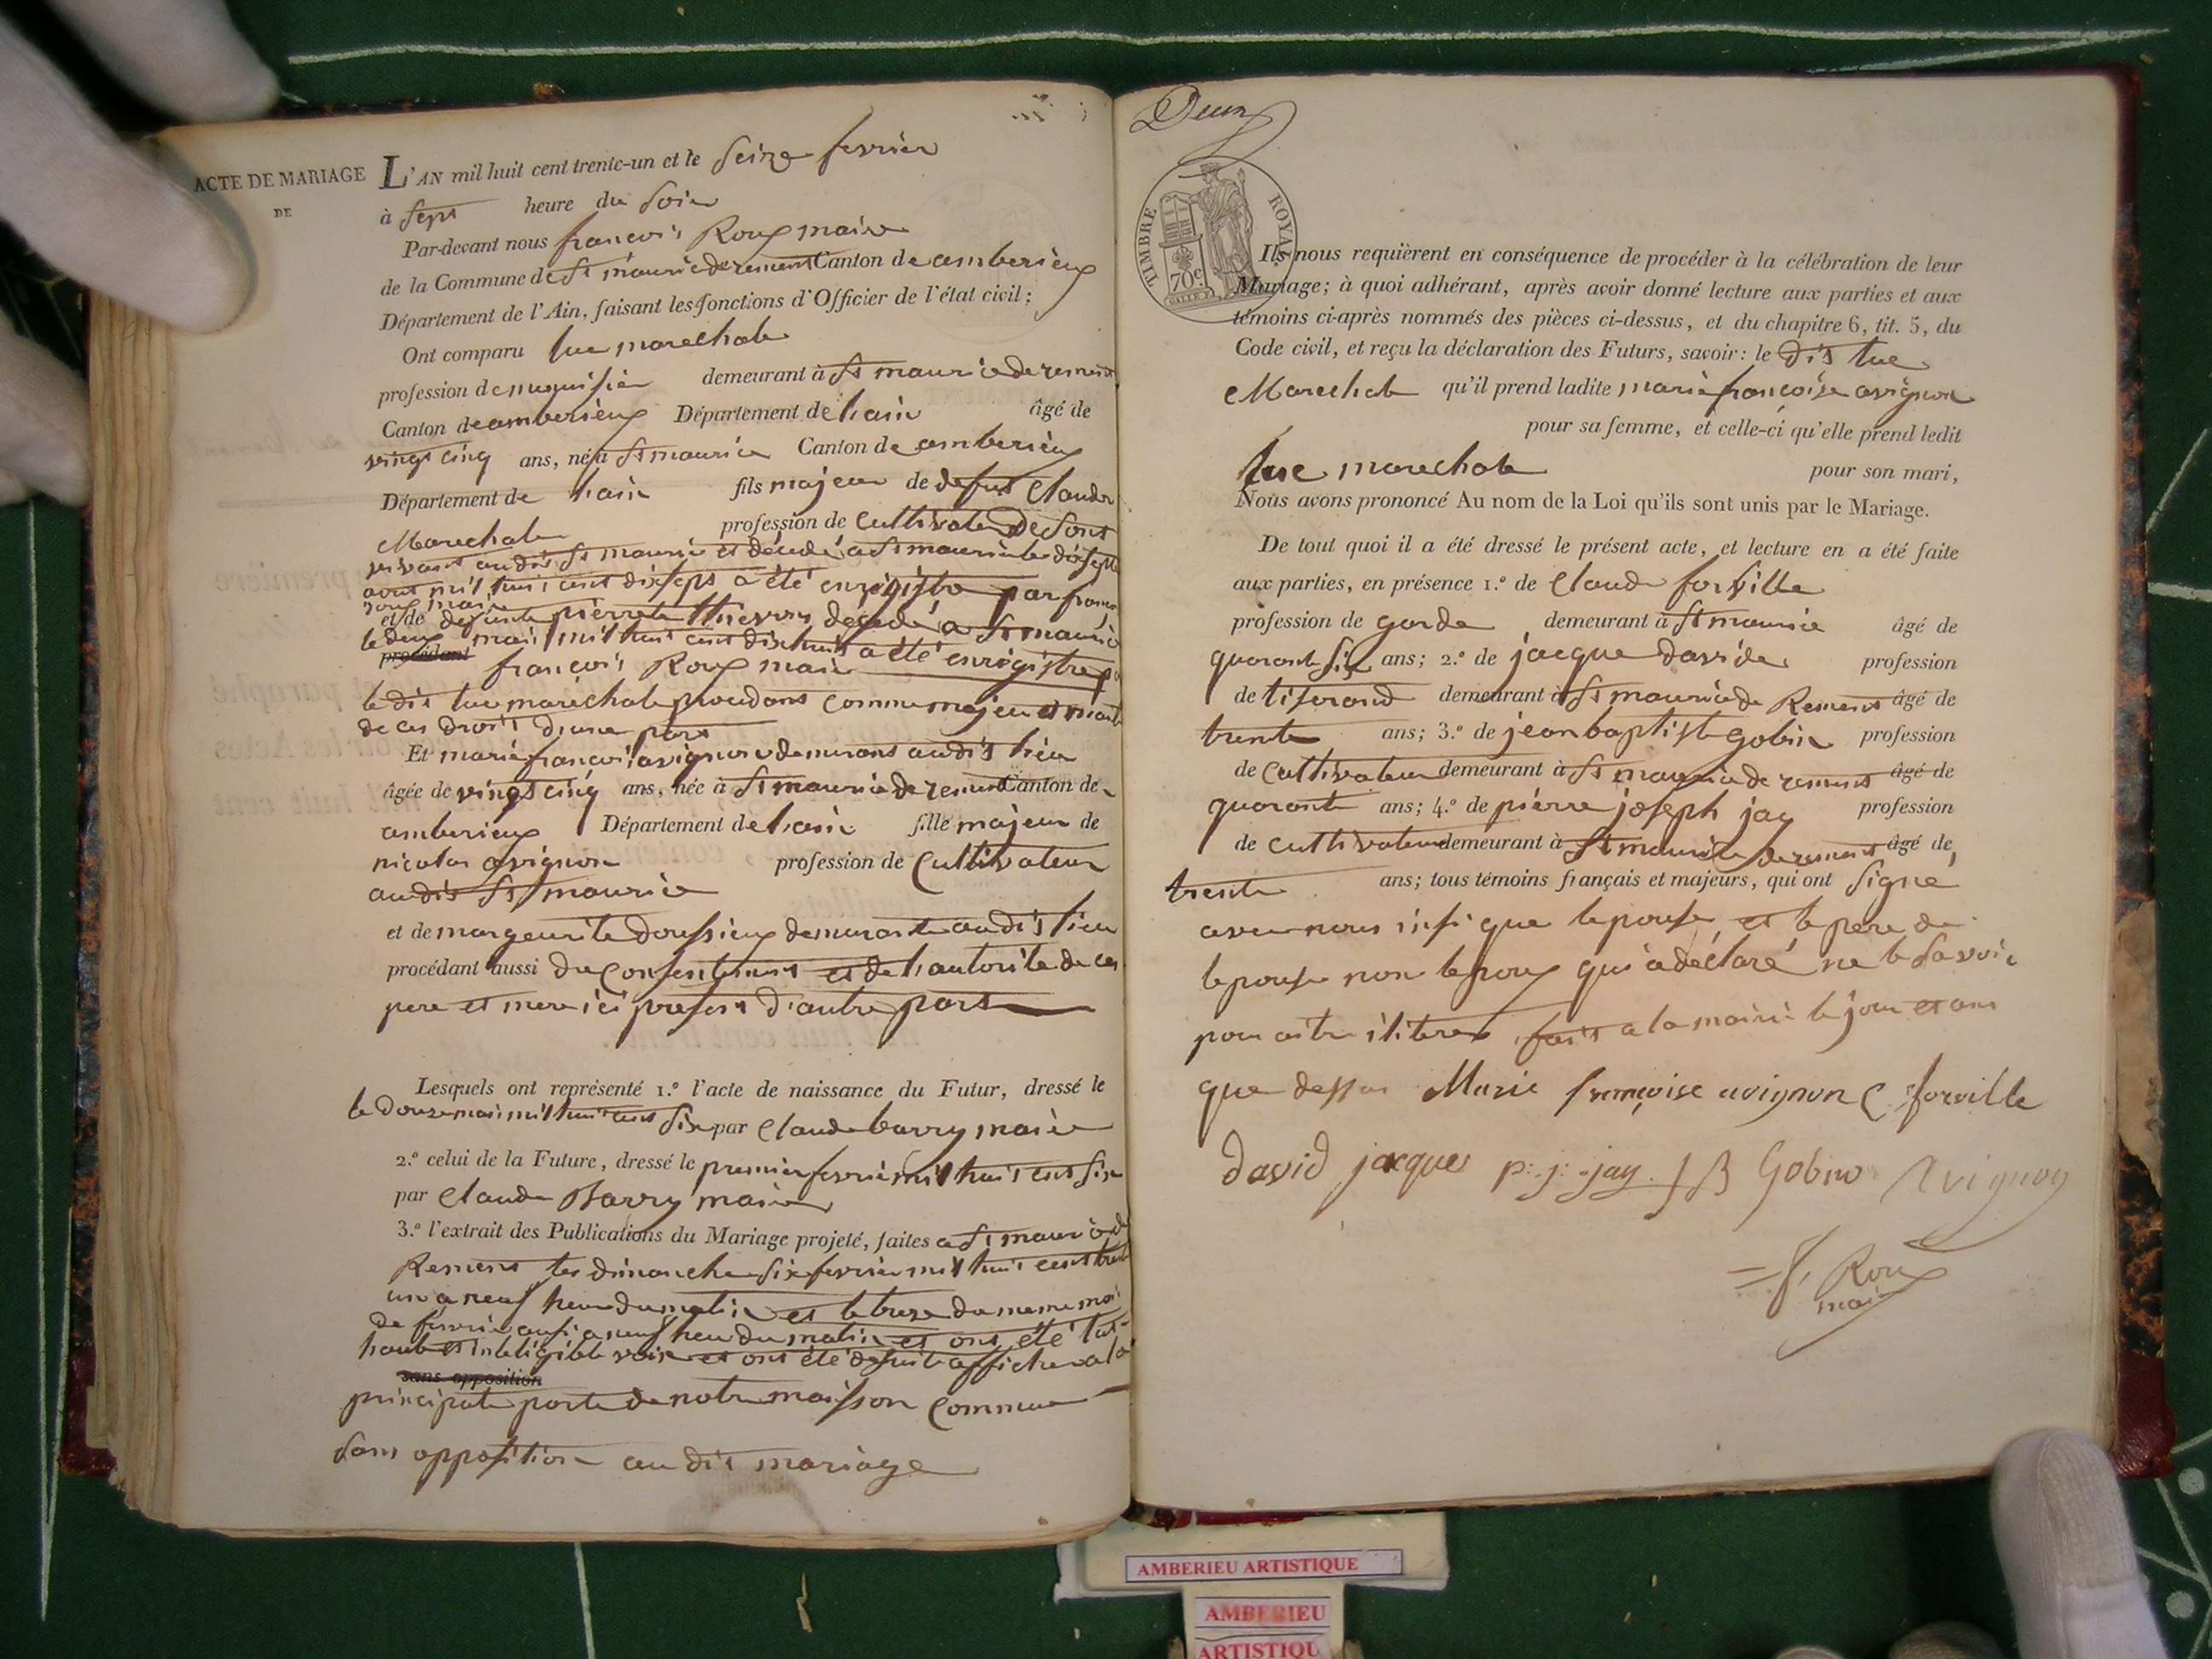 ACTE DE MARIAGE
DE
L'AN mil huit cent trente-un et le Seize fevrier
à Sept heure du Soir
Par-devant nous francois Roux maire
de la Commune de St maurice de remens Canton de amberieux
Département de l'Ain, faisant les fonctions d'Officier de l'état civil;
Ont comparu luc marechale
profession de menuisier demeurant à St maurice de remens
Canton de amberieux Département de lain âgé de
vingt cinq ans, né à St maurice Canton de amberieux
Département de lain fils majeur de defunt Claude
Marechale profession de Cultivateur De Sont
vivant audit St maurice et décédé a St maurice le dixsept
aout mil huit cent dixsept a été enrégistre par francois
roux maire
et de defunte pierrette thevenin décédé a St maurice
le deux mai mil huit cent dixhuit a été enrégistre par
procédant francois Roux maire
le dit luc maréchale procedant comme majeur et maitre
de ces droits d'une part
Et marie francoise avignon demeurant audit lieu
âgée de vingt cinq ans, née à St maurice de remens Canton de
amberieux Département de lain fille majeur de
nicolas avignon profession de Cultivateur
audit St maurice
et de margeurite doussieux demeurante audit lieu
procédant aussi du Consentement et de l'autorité de ces
pere et mere ici present d'autre part
Lesquels ont représenté 1.º l'acte de naissance du Futur, dressé le
le douze mai mil huit cent Six par Claude barry maire
2.º celui de la Future, dressé le premier fevrier mil huit cent six
par Claude Barry maire
3.º l'extrait des Publications du Mariage projeté, faites a St maurice de
Remens les dimanche Six fevrier mil huit cent trente
un a neuf heure du matin et le treze du meme moi
de fevrier aussi a neuf heure du matin et ont été lus
haute et inteligible voix et ont été desuite affiche a la
sans opposition
principale porte de notre maisson Commune
Sans opposition au dit mariage
Deux
TIMBRE ROYAL
70c
Ils nous requièrent en conséquence de procéder à la célébration de leur
Mariage; à quoi adhérant, après avoir donné lecture aux parties et aux
témoins ci-après nommés des pièces ci-dessus, et du chapitre 6, tit. 5, du
Code civil, et reçu la déclaration des Futurs, savoir: le dit luc
Marechale qu'il prend ladite marie françoise avignon
pour sa femme, et celle-ci qu'elle prend ledit
luc marechale pour son mari,
Nous avons prononcé Au nom de la Loi qu'ils sont unis par le Mariage.
De tout quoi il a été dressé le présent acte, et lecture en a été faite
aux parties, en présence 1.º de Claude forville
profession de garde demeurant à St maurice âgé de
quarante Six ans; 2.º de jacque david profession
de tiserand demeurant à St maurice de Remens âgé de
trente ans; 3.º de jean baptiste gobin profession
de Cultivateur demeurant à St maurice de remens âgé de
quarante ans; 4.º de pierre joseph jay profession
de Cultivateur demeurant à St maurice de remens âgé de
trente ans; tous témoins français et majeurs, qui ont Signé
avec nous insi que lepouse et le pere de
lepouse non lepoux qui a déclaré ne le Savoir
pour etre iliteré, fait a la mairie le jour et ans
que dessus Marie françoise avignon C forville
david jacque p: j: jay J B Gobin Avignon
= f, Roux
maire
AMBERIEU ARTISTIQUE
AMBERIEU
ARTISTIQU